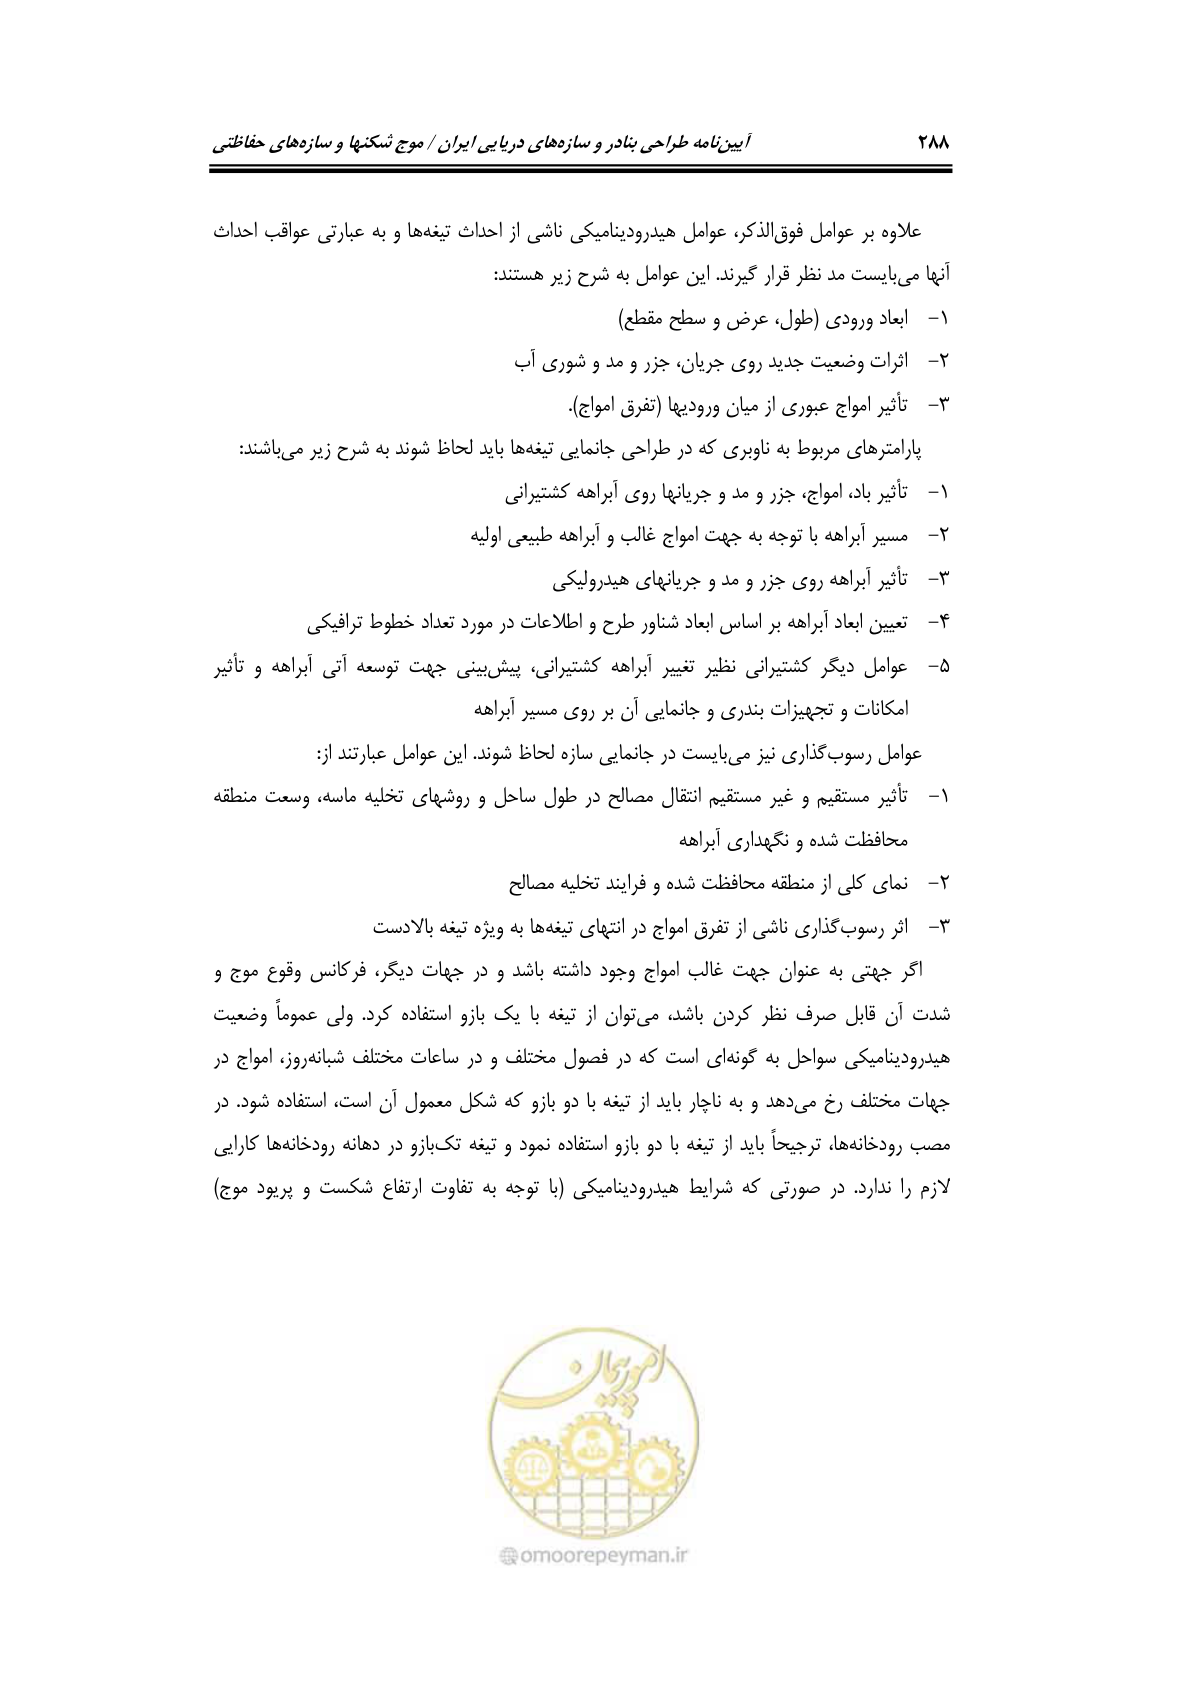 ۲۸۸ آیین‌نامه طراحی بنادر و سازه‌های دریایی ایران / موج شکنها و سازه‌های حفاظتی
علاوه بر عوامل فوق‌الذکر، عوامل هیدرودینامیکی ناشی از احداث تیغه‌ها و به عبارتی عواقب احداث
آنها می‌بایست مد نظر قرار گیرند. این عوامل به شرح زیر هستند:
۱- ابعاد ورودی (طول، عرض و سطح مقطع)
۲- اثرات وضعیت جدید روی جریان، جزر و مد و شوری آب
۳- تأثیر امواج عبوری از میان ورودیها (تفرق امواج).
پارامترهای مربوط به ناوبری که در طراحی جانمایی تیغه‌ها باید لحاظ شوند به شرح زیر می‌باشند:
۱- تأثیر باد، امواج، جزر و مد و جریانها روی آبراهه کشتیرانی
۲- مسیر آبراهه با توجه به جهت امواج غالب و آبراهه طبیعی اولیه
۳- تأثیر آبراهه روی جزر و مد و جریانهای هیدرولیکی
۴- تعیین ابعاد آبراهه بر اساس ابعاد شناور طرح و اطلاعات در مورد تعداد خطوط ترافیکی
۵- عوامل دیگر کشتیرانی نظیر تغییر آبراهه کشتیرانی، پیش‌بینی جهت توسعه آتی آبراهه و تأثیر
امکانات و تجهیزات بندری و جانمایی آن بر روی مسیر آبراهه
عوامل رسوب‌گذاری نیز می‌بایست در جانمایی سازه لحاظ شوند. این عوامل عبارتند از:
۱- تأثیر مستقیم و غیر مستقیم انتقال مصالح در طول ساحل و روشهای تخلیه ماسه، وسعت منطقه
محافظت شده و نگهداری آبراهه
۲- نمای کلی از منطقه محافظت شده و فرایند تخلیه مصالح
۳- اثر رسوب‌گذاری ناشی از تفرق امواج در انتهای تیغه‌ها به ویژه تیغه بالادست
اگر جهتی به عنوان جهت غالب امواج وجود داشته باشد و در جهات دیگر، فرکانس وقوع موج و
شدت آن قابل صرف نظر کردن باشد، می‌توان از تیغه با یک بازو استفاده کرد. ولی عموماً وضعیت
هیدرودینامیکی سواحل به گونه‌ای است که در فصول مختلف و در ساعات مختلف شبانه‌روز، امواج در
جهات مختلف رخ می‌دهد و به ناچار باید از تیغه با دو بازو که شکل معمول آن است، استفاده شود. در
مصب رودخانه‌ها، ترجیحاً باید از تیغه با دو بازو استفاده نمود و تیغه تک‌بازو در دهانه رودخانه‌ها کارایی
لازم را ندارد. در صورتی که شرایط هیدرودینامیکی (با توجه به تفاوت ارتفاع شکست و پریود موج)
امور پیمان
omoorepeyman.ir